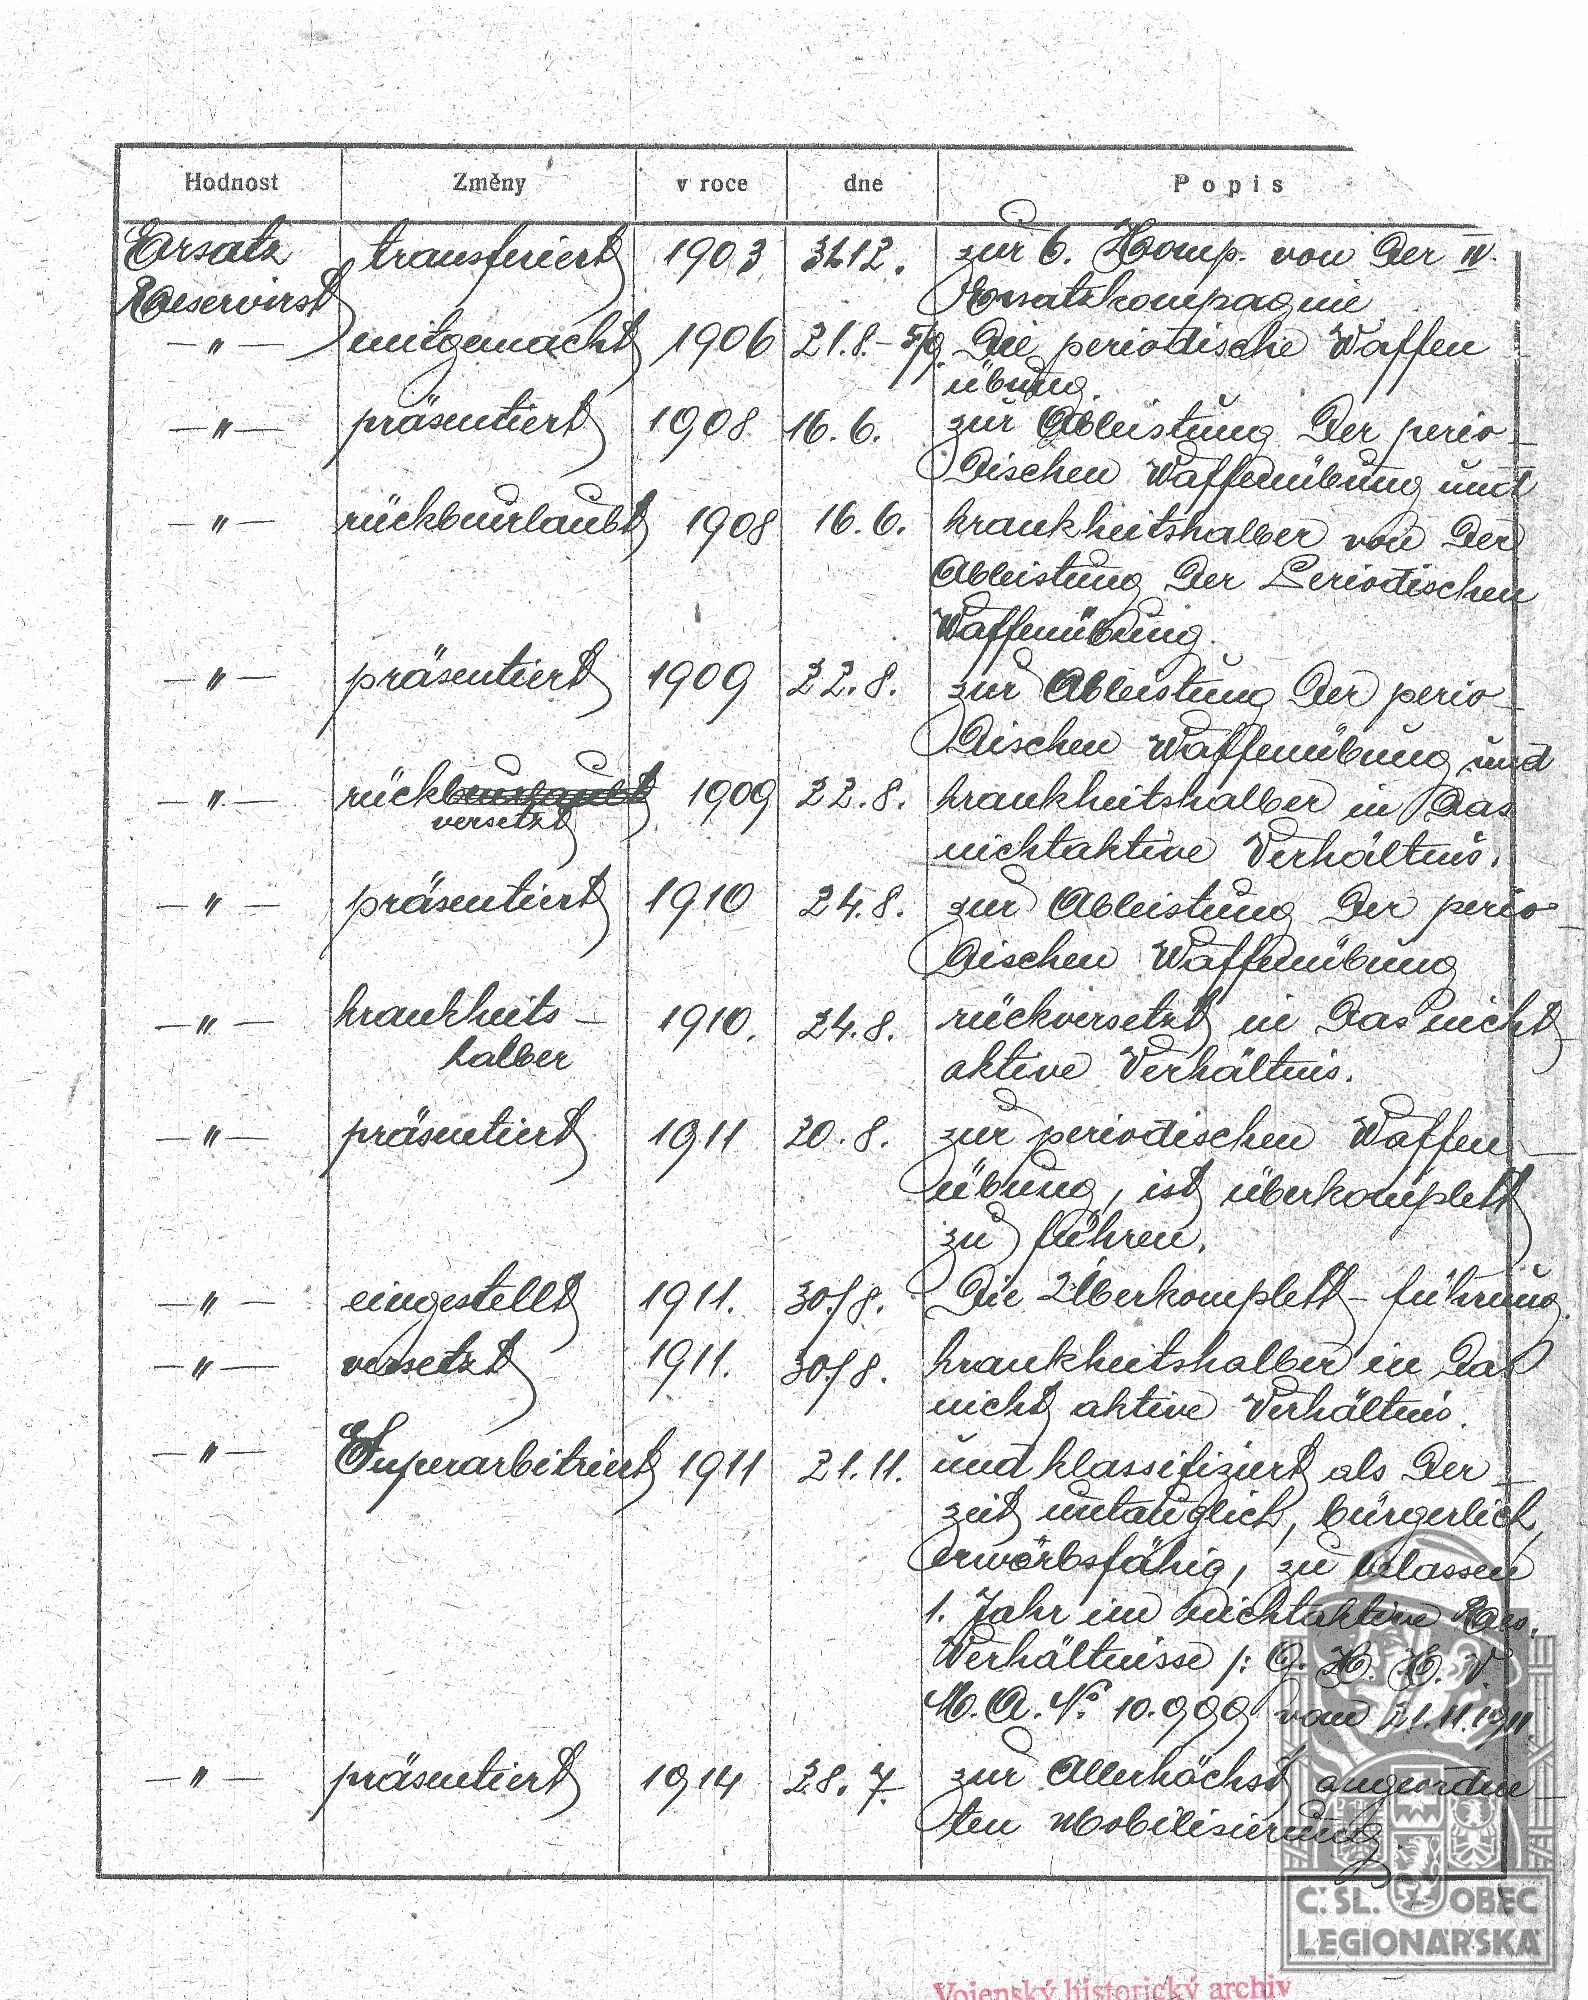 Hodnost Změny v roce dne Popis
Ersatz transferiert 1903 31.12. zur 6. Komp. von der IV.
Reservirst Ersatzkompagnie
—"— mitgemacht 1906 21.8.–5/9. Die periodische Waffen
übung.
—"— präsentiert 1908 16.6. zur Ableistung der perio-
dischen Waffenübung und
—"— rückbeurlaubt 1908 16.6. krankheitshalber von der
Ableistung der Periodischen
Waffenübung.
—"— präsentiert 1909 22.8. zur Ableistung der perio-
dischen Waffenübung und
—"— rückbeurlaubt 1909 22.8. krankheitshalber in das
versetzt nichtaktive Verhältnis.
—"— präsentiert 1910 24.8. zur Ableistung der perio-
dischen Waffenübung
—"— krankheits- 1910. 24.8. rückversetzt in das nicht-
halber aktive Verhältnis.
—"— präsentiert 1911 20.8. zur periodischen Waffen-
übung, ist überkomplett
zu führen.
—"— eingestellt 1911. 30./8. Die Überkomplett-führung.
—"— versetzt 1911. 30./8. krankheitshalber in das
nicht aktive Verhältnis.
—"— Superarbitriert 1911 21.11. und klassifiziert als der-
zeit untauglich, bürgerlich,
erwerbsfähig, zu belassen
1. Jahr im nichtaktive Res.
Verhältnisse /: O. K. K. V.
M. A. No 10.999 vom 21.11.1911.
—"— präsentiert 1914 28.7. zur Allerhöchst angeordne-
ten Mobilisierung.
Č. SL. OBEC
LEGIONÁŘSKÁ
Vojenský historický archiv